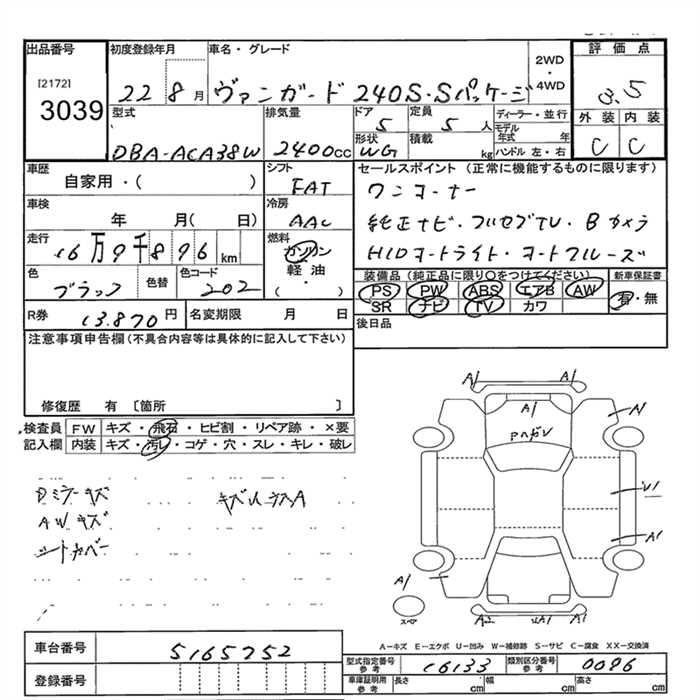 出品番号
[2172]
3039
初度登録年月
22 8月
車名・グレード
ヴァンガード 240S・Sパッケージ
2WD
・
4WD
評価点
3.5
外装 内装
C C
型式
DBA-ACA38W
排気量
2400cc
ドア
5
形状
WG
定員
5人
積載
kg
ディーラー・並行
モデル年式 年
ハンドル 左・右
車歴
自家用・( )
シフト
FAT
車検
年 月( 日)
冷房
AAC
走行
16万9千896km
燃料
ガソリン
軽油
・
( )
色
ブラック
色替
色コード
202
R券
13,870円
名変期限 月 日
セールスポイント(正常に機能するものに限ります)
ワンオーナー
純正ナビ・フルセグTV・Bカメラ
HIDオートライト・オートクルーズ
装備品(純正品に限り○をつけてください)
新車保証書
PS PW ABS エアB AW
SR ナビ TV カワ
有・無
後日品
注意事項申告欄(不具合内容等は具体的に記入して下さい)
修復歴 有 [箇所 ]
検査員
記入欄
FW キズ・飛石・ヒビ割・リペア跡・×要
内装 キズ・汚レ・コゲ・穴・スレ・キレ・破レ
Dミラーキズ
AWキズ
シートカバー
A1 A1
A1
A1
U1
A1
A1
スペア
A2 UA1 A1
A-キズ E-エクボ U-凹み W-補修跡 S-サビ C-腐食 XX-交換済
車台番号
5165752
登録番号
型式指定番号
参考
16133
類別区分番号
参考
0096
車庫証明用
参考
長さ cm 幅 cm 高さ cm